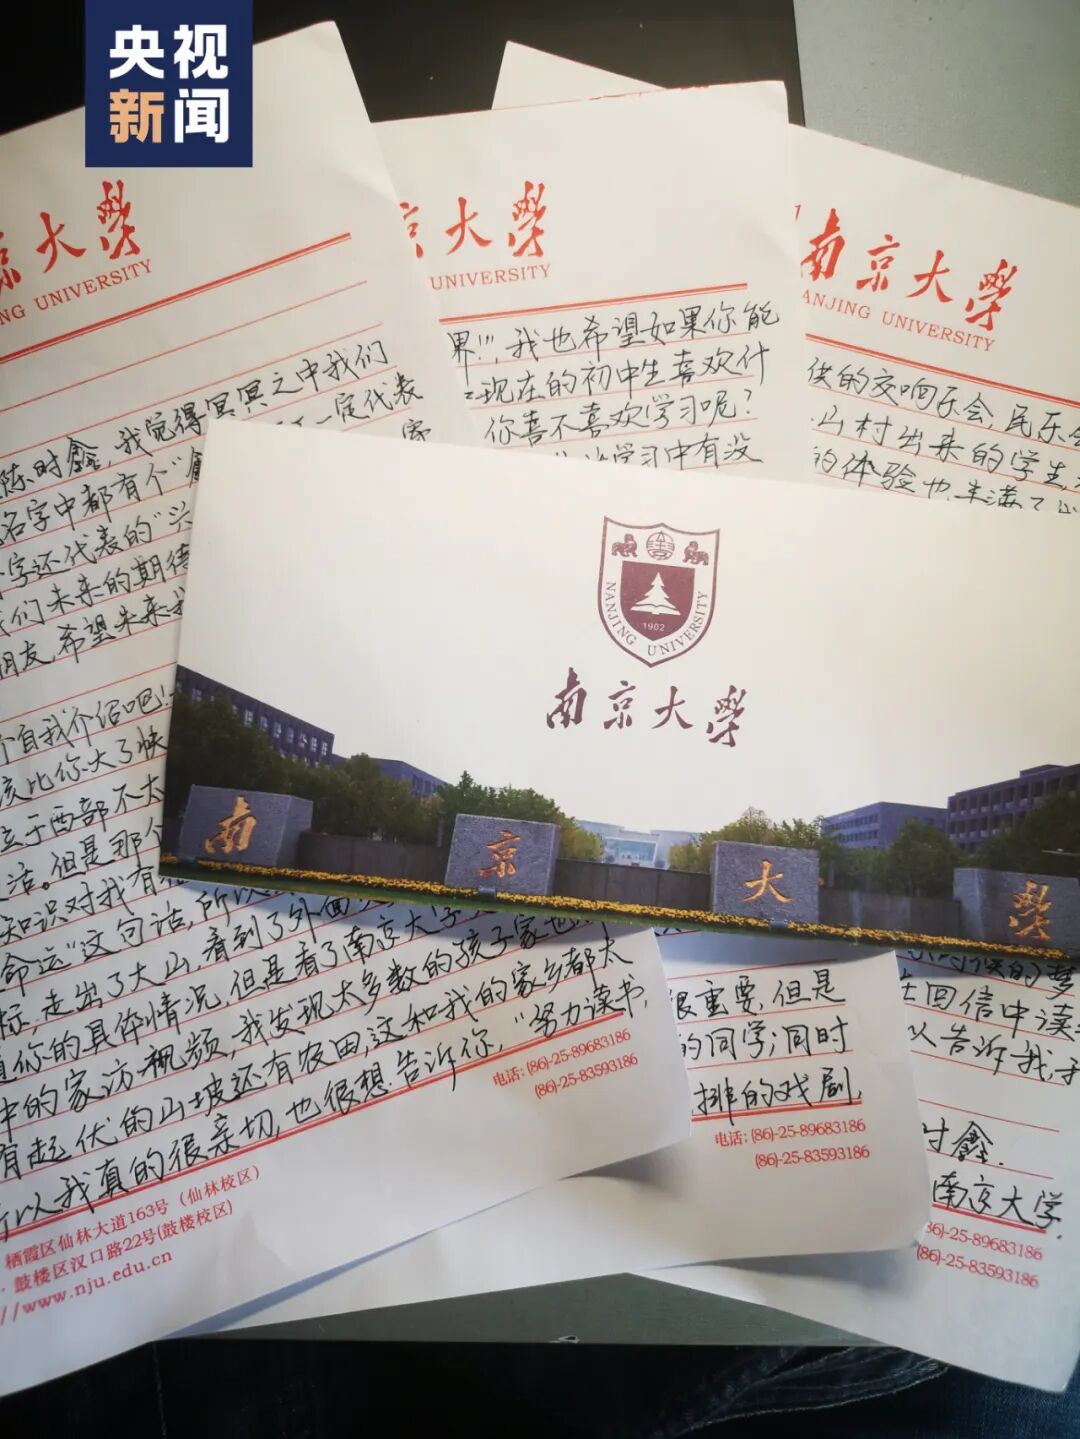 央视
新闻
京大學
NG UNIVERSITY
陈时鑫,我觉得冥冥之中我们
一定代表
名字中都有个“
字还代表的“兴
们未来的期待
朋友,希望未来我
个自我介绍吧!
该比你大了快
位于西部不太
活。但是那个
知识对我有
命运”这句话,所以
标,走出了大山,看到了外面
道你的具体情况,但是看了南京大学
中的家访视频,我发现太多数的孩子家也
有起伏的山坡还有农田,这和我的家乡都太
所以我真的很亲切,也很想告诉你,“努力读书,
电话:(86)-25-89683186
(86)-25-83593186
栖霞区仙林大道163号(仙林校区)
鼓楼区汉口路22号(鼓楼校区)
//www.nju.edu.cn
京大學
UNIVERSITY
界!!”,我也希望如果你能
现在的初中生喜欢什
你喜不喜欢学习呢?
学习中有没
很重要,但是
的同学;同时
排的戏剧,
电话:(86)-25-89683186
(86)-25-83593186
南京大學
NANJING UNIVERSITY
供的交响乐会,民乐会
山村出来的学生
的体验也丰满了
在回信中读
以告诉我,于
时鑫.
南京大学.
86)-25-89683186
(86)-25-83593186
NANJING UNIVERSITY
1902
南京大學
南京大學